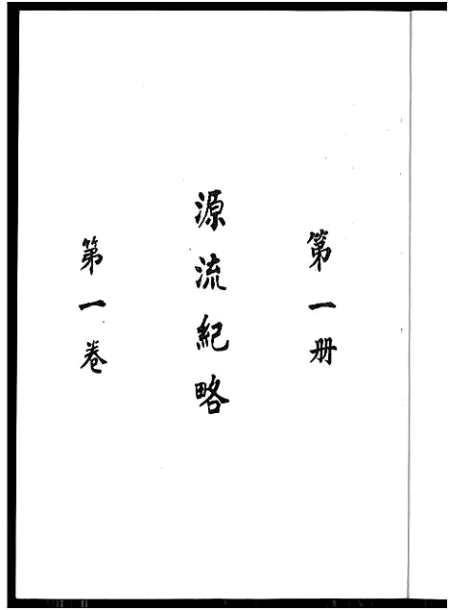 第一册
源流紀略
第一卷